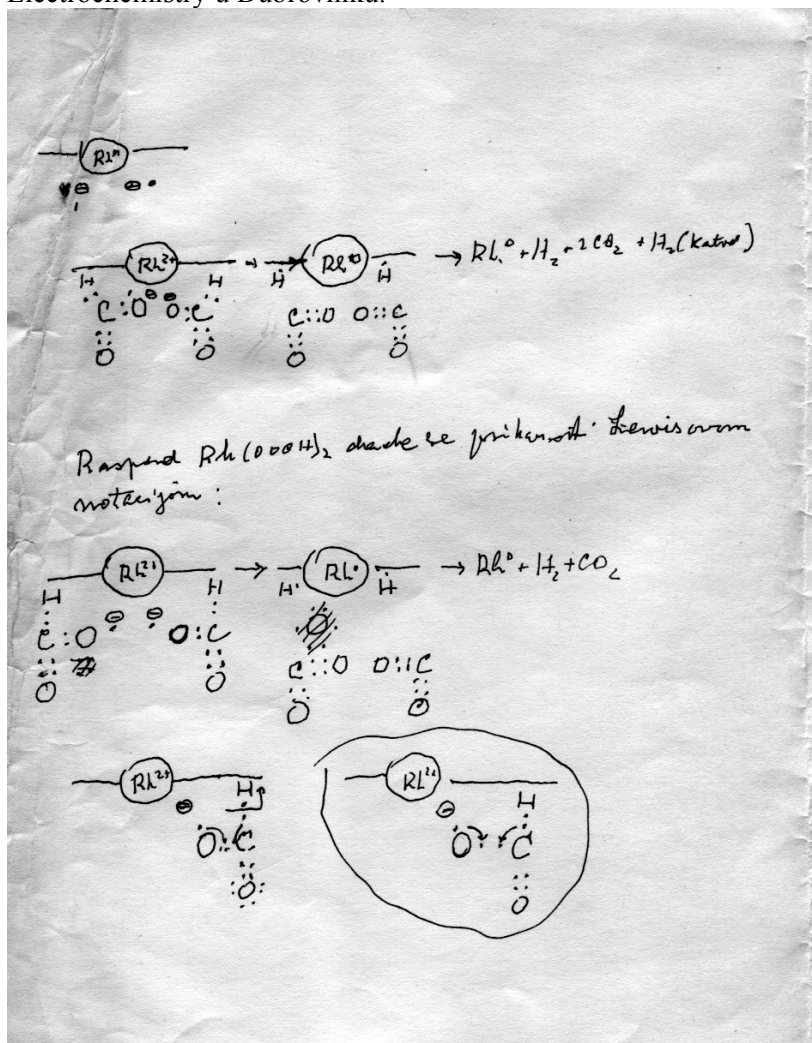 Electrochemistry u Dubrovniku.
Rhⁿ
⊖ ⊖
Rh²⁺ → Rh⁰ → Rh⁰ + H₂ + 2CO₂ + H₂
H H H H
C:O ⊖ ⊖ O:C C::O O::C
O O O O
Raspad Rh(OOOH)₂ se prikazati Lewisovom
notacijom:
Rh²⁺ → Rh⁰ → Rh⁰ + H₂ + CO₂
H H H H
C:O ⊖ ⊖ O:C
C::O O::C
O O O O
Rh²⁺ Rh²⁺
⊖ H ⊖ H
O C O C
O O